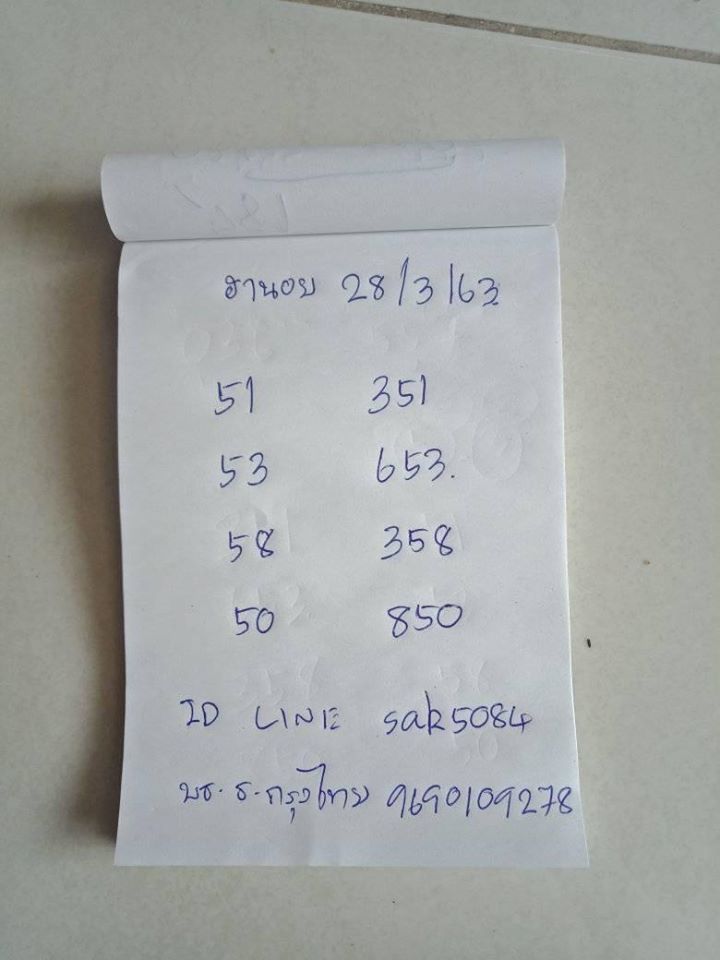 ฮานอย 28/3/63
51 351
53 653.
58 358
50 850
ID LINE sak5084
บช. ธ. กรุงไทย 9690109278